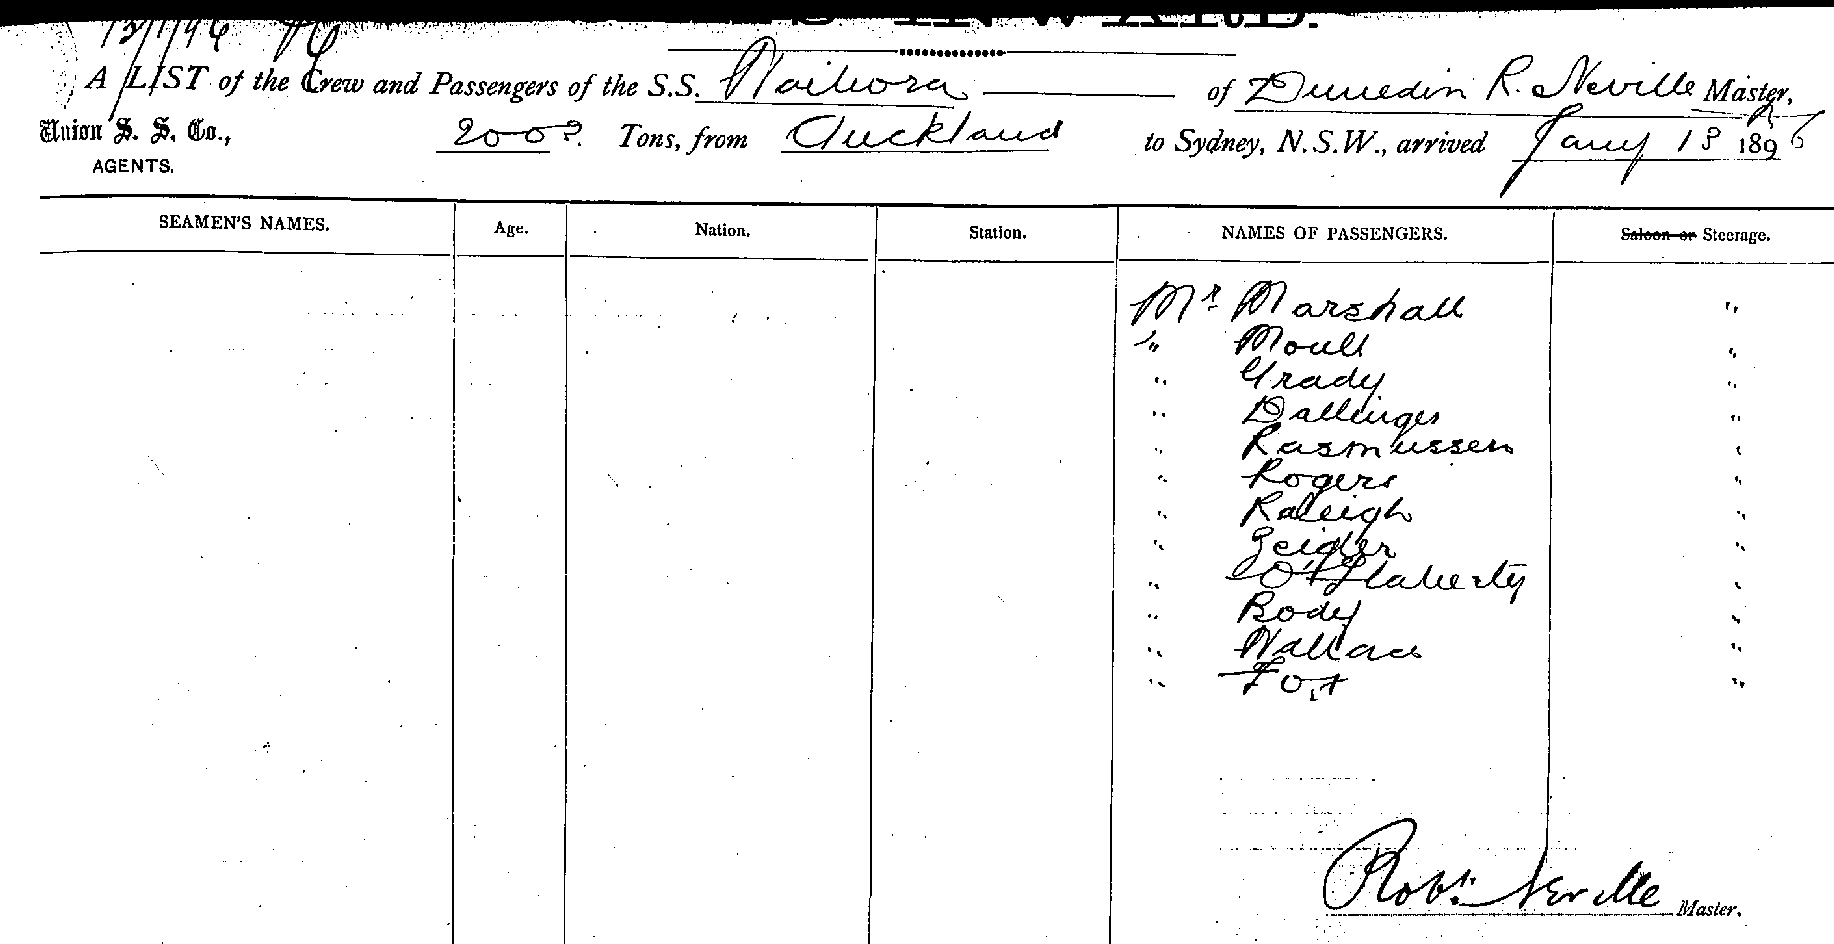 13/1/96
S INWARD.
A LIST of the Crew and Passengers of the S.S. Waihora of Dunedin R. Neville Master,
Union S. S. Co., 2003. Tons, from Auckland to Sydney, N.S.W., arrived Jany 13 1896
AGENTS.
SEAMEN'S NAMES. Age. Nation. Station. NAMES OF PASSENGERS. Saloon or Steerage.
Mr Marshall "
" Moult "
" Grady "
" Dallinger "
" Rasmussen "
" Rogers "
" Raleigh "
" Zeigler "
" O'Flaherty "
" Body "
" Wallace "
" Fox "
Robt. Neville Master.